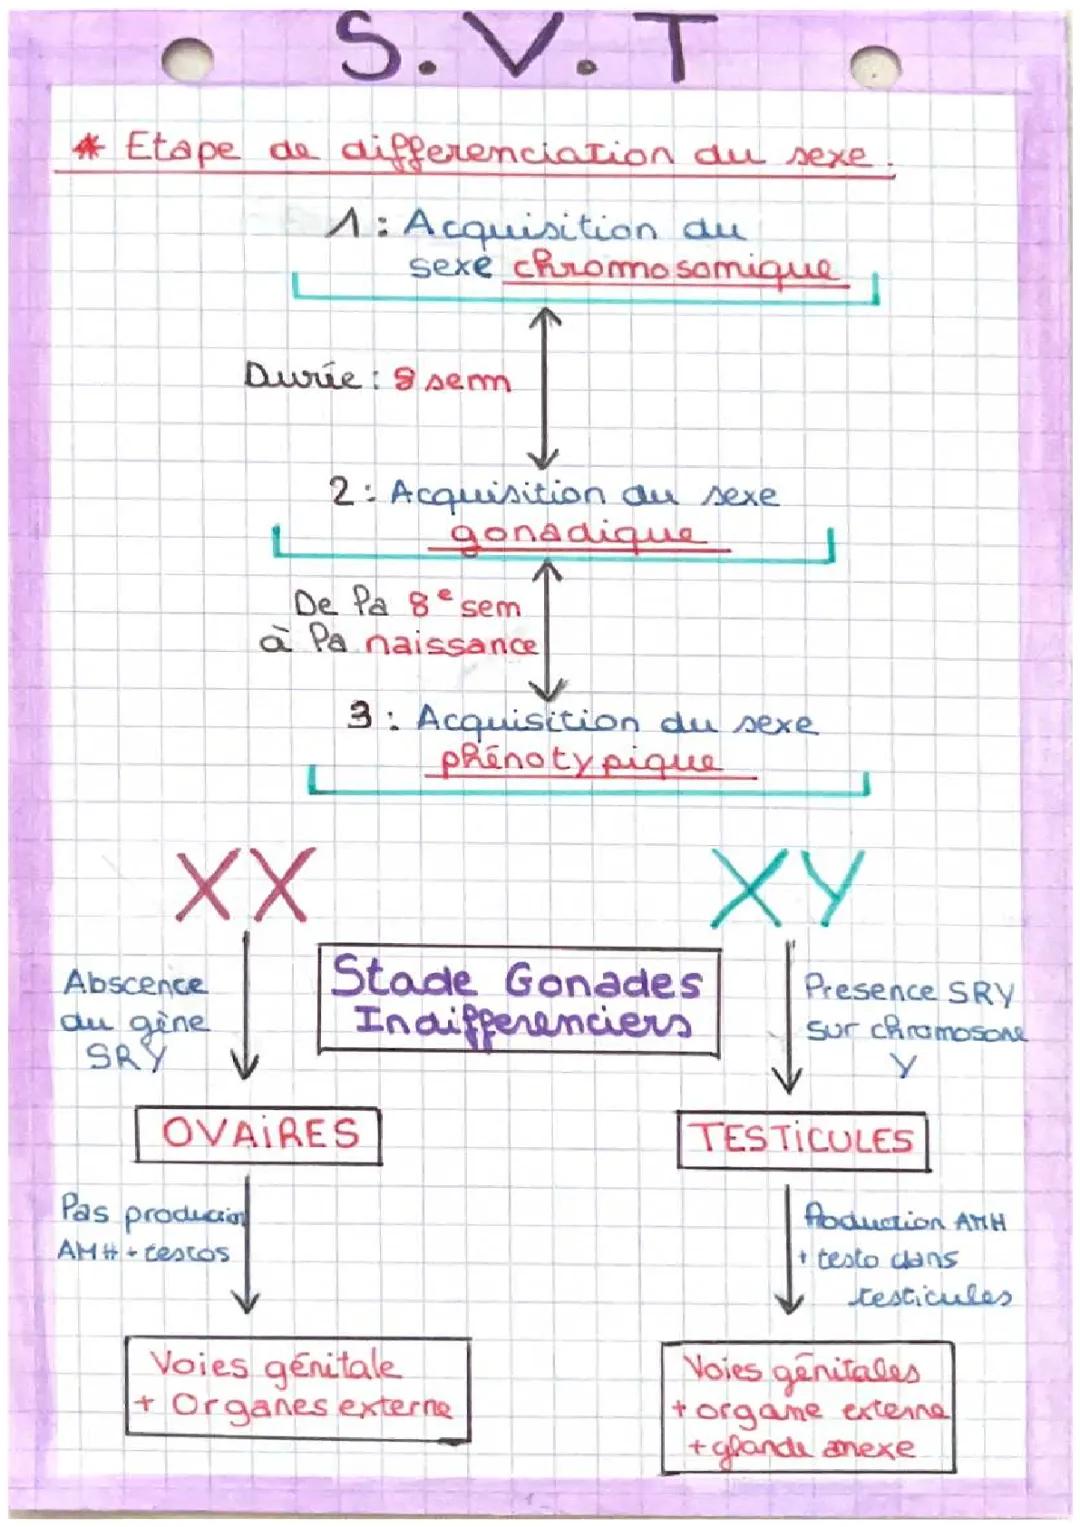 S.V.T
* Etape de differenciation du sexe.
1: Acquisition du
sexe chromosomique
Durée: 8 sem
2: Acquisition du sexe
gonadique
De la 8e sem
à la naissance
3: Acquisition du sexe
phénotypique
XX
XY
Abscence
du gène
SRY
Stade Gonades
Indifferenciers
Presence SRY
sur chromosome
Y
OVAiRES
TESTiCULES
Pas producion
AMH + testos
Production AMH
+ testo dans
testicules
Voies génitale
+ Organes externe
Voies génitales
+ organe externe
+ glande anexe